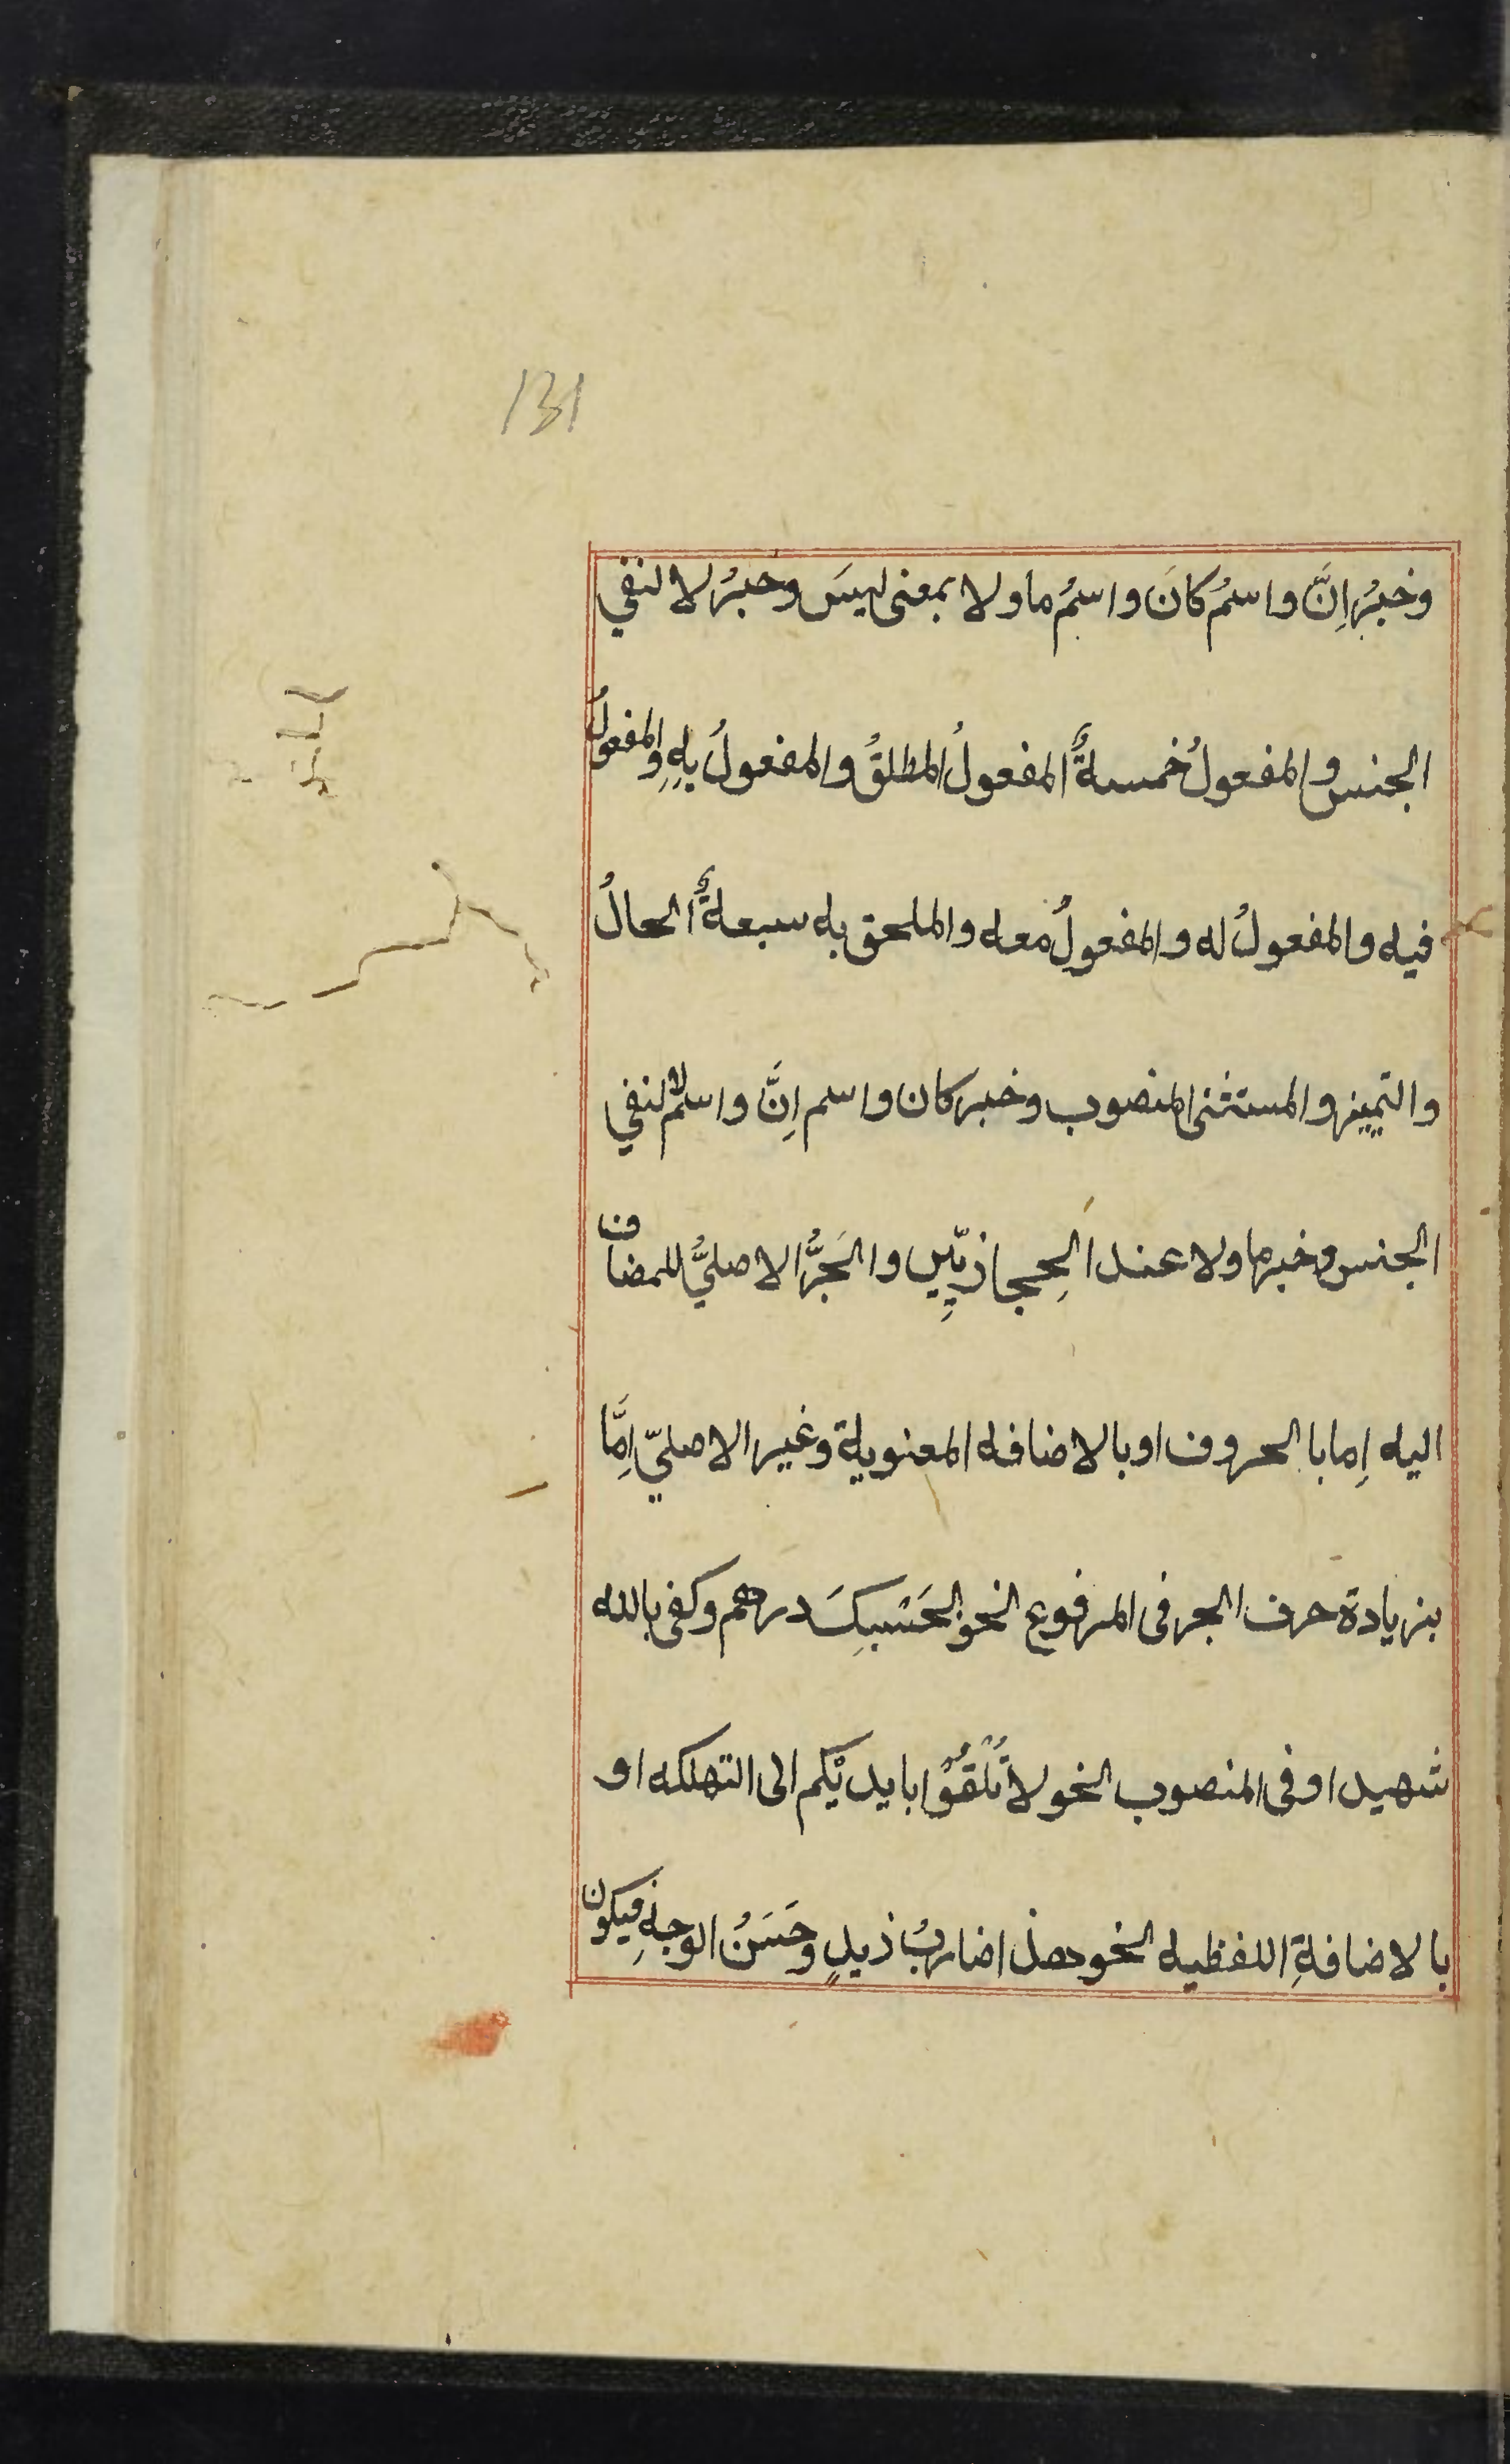 131
وخبرُ اِنَّ واسمُ كانَ واسمُ ما ولا بمعنى ليسَ وخبرُ لا لنفي
الجنس والمفعولُ خمسةٌ المفعولُ المطلقُ والمفعولُ بِهِ والمفعولُ
فيه والمفعولُ له والمفعولُ معه والملحق به سبعةٌ الحالُ
والتمييز والمستثنى المنصوب وخبر كان واسم اِنَّ واسم لا لنفي
الجنس وخبر ما ولا عند الحِجازيّينِ والجَرُّ الاصليُّ للمضاف
اليه اِما بالحروف او بالاضافه المعنوية وغير الاصليّ اِمَّا
بزيادة حرف الجر فى المرفوع النحو بحَسْبِكَ درهم وكفى بالله
شهيد اوفى المنصوب النحو لا تُلْقُوْا بايديْكم الى التهلكه او
بالاضافةِ اللفظيه النحو هذا ضاربُ ذيدٍ وحَسَنُ الوجهِ فيكون